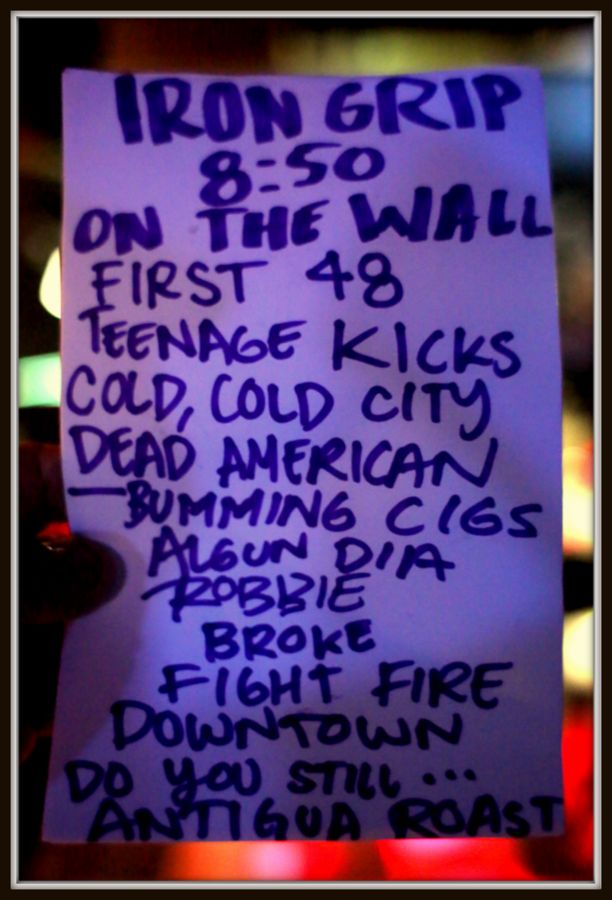 IRON GRIP
8:50
ON THE WALL
FIRST 48
TEENAGE KICKS
COLD, COLD CITY
DEAD AMERICAN
—BUMMING CIGS
ALGUN DIA
ROBBIE
BROKE
FIGHT FIRE
DOWNTOWN
DO YOU STILL...
ANTIGUA ROAST